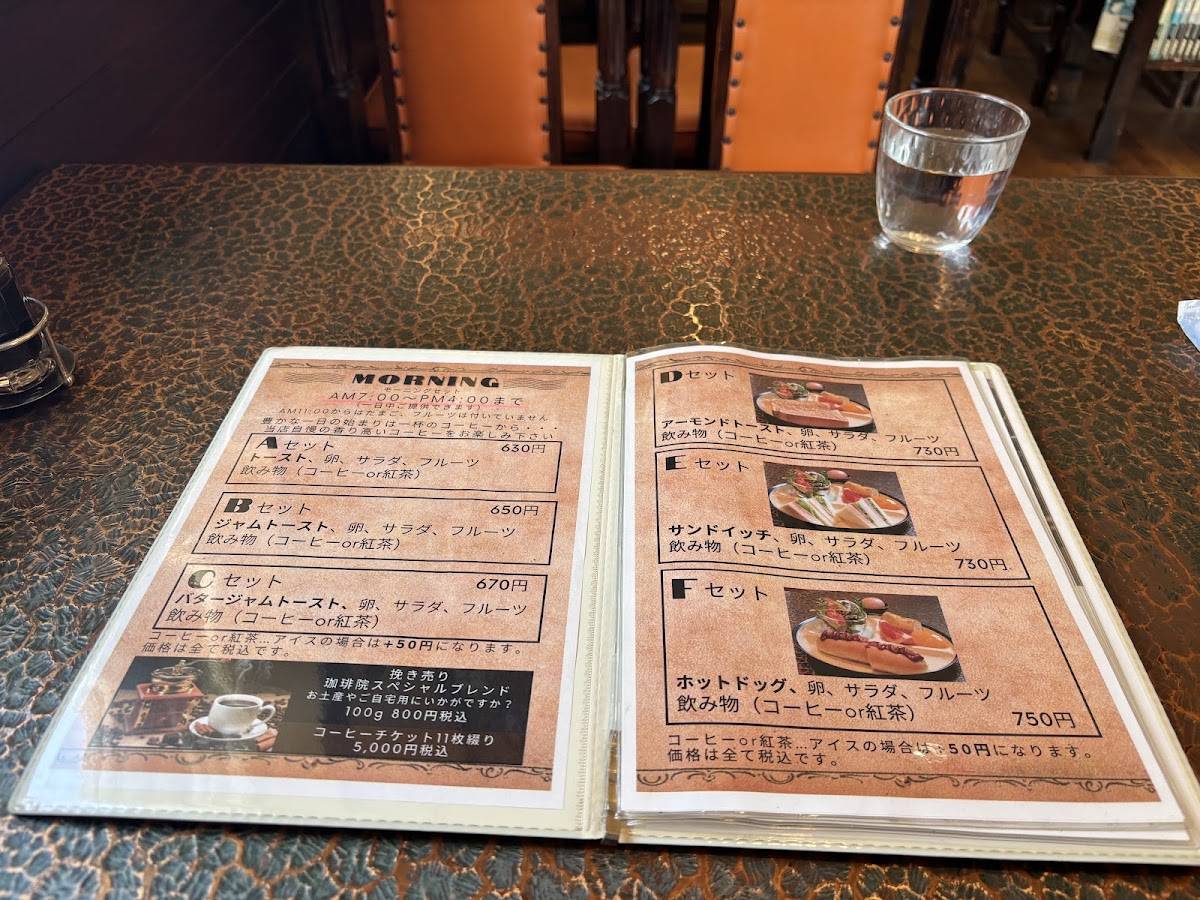 MORNING
モーニングセット
AM7:00～PM4:00まで
(一日中ご提供できます)
AM11:00からはたまご、フルーツは付いていません
豊かな一日の始まりは一杯のコーヒーから・・・
当店自慢の香り高いコーヒーをお楽しみ下さい
Aセット 630円
トースト、卵、サラダ、フルーツ
飲み物（コーヒーor紅茶）
Bセット 650円
ジャムトースト、卵、サラダ、フルーツ
飲み物（コーヒーor紅茶）
Cセット 670円
バタージャムトースト、卵、サラダ、フルーツ
飲み物（コーヒーor紅茶）
コーヒーor紅茶…アイスの場合は+50円になります。
価格は全て税込です。
挽き売り
珈琲院スペシャルブレンド
お土産やご自宅用にいかがですか？
100g 800円税込
コーヒーチケット11枚綴り
5,000円税込
Dセット
アーモンドトースト、卵、サラダ、フルーツ
飲み物（コーヒーor紅茶） 730円
Eセット
サンドイッチ、卵、サラダ、フルーツ
飲み物（コーヒーor紅茶） 730円
Fセット
ホットドッグ、卵、サラダ、フルーツ
飲み物（コーヒーor紅茶） 750円
コーヒーor紅茶…アイスの場合は+50円になります。
価格は全て税込です。